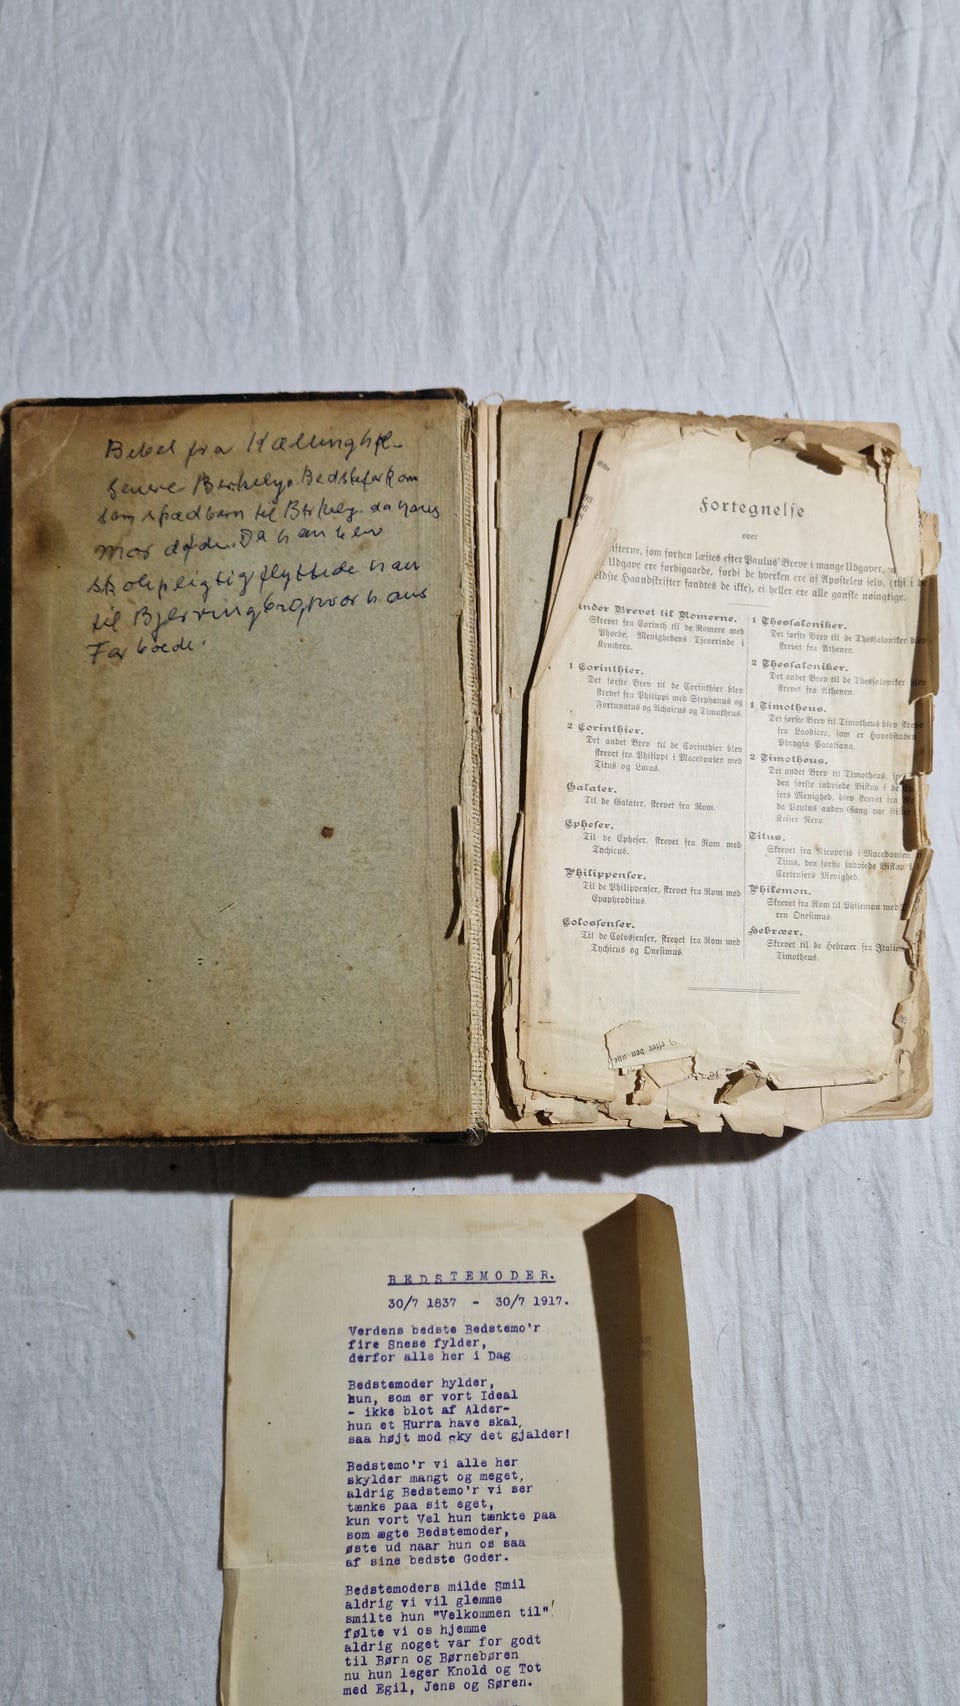 Bibel fra Kællinghøl-
senere Birkely. Bedstefar kom
som spædbarn til Birkely. da hans
Mor døde. Da han blev
skolepligtig flyttede han
til Bjerringbro, hvor hans
Far boede.
Fortegnelse
over
ifterne, som forhen læstes efter Paulus' Breve i mange Udgaver,
Udgave ere forbigaaede, fordi de hverken ere af Apostelen selv, (thi i de
ældste Haandskrifter fandtes de ikke), ei heller ere alle ganske nøiagtige.
under Brevet til Romerne.
Skrevet fra Corinth til de Romere med
Phoebe, Menighedens Tjenerinde i
Kenchrea.
1 Corinthier.
Det første Brev til de Corinthier blev
skrevet fra Philippi med Stephanus og
Fortunatus og Achaicus og Timotheus.
2 Corinthier.
Det andet Brev til de Corinthier blev
skrevet fra Philippi i Macedonien med
Titus og Lucas.
Galater.
Til de Galater, skrevet fra Rom.
Epheser.
Til de Epheser, skrevet fra Rom med
Tychicus.
Philippenser.
Til de Philippenser, skrevet fra Rom med
Epaphroditus.
Colossenser.
Til de Colossenser, skrevet fra Rom med
Tychicus og Onesimus
1 Thessaloniker.
Det første Brev til de Thessaloniker blev
skrevet fra Athenen.
2 Thessaloniker.
Det andet Brev til de Thessaloniker blev
skrevet fra Athenen.
1 Timotheus.
Det første Brev til Timotheus blev skrevet
fra Laodicea, som er Hovedstaden
Phrygia Pacatiana.
2 Timotheus.
Det andet Brev til Timotheus,
den første indviede Biskop i de
sers Menighed, blev skrevet fra
da Paulus anden Gang var
Keiser Nero.
Titus.
Skrevet fra Nicopolis i Macedonien
Titus, den første indviede Biskop i
Cretensers Menighed.
Philemon.
Skrevet fra Rom til Philemon med
ren Onesimus.
Hebræer.
Skrevet til de Hebræer fra Italien
Timotheus.
efter den nye
BEDSTEMODER.
30/7 1837 - 30/7 1917.
Verdens bedste Bedstemo'r
fire Snese fylder,
derfor alle her i Dag
Bedstemoder hylder,
hun, som er vort Ideal
- ikke blot af Alder-
hun et Hurra have skal,
saa højt mod sky det gjalder!
Bedstemo'r vi alle her
skylder mangt og meget,
aldrig Bedstemo'r vi ser
tænke paa sit eget,
kun vort Vel hun tænkte paa
som ægte Bedstemoder,
øste ud naar hun os saa
af sine bedste Goder.
Bedstemoders milde Smil
aldrig vi vil glemme
smilte hun "Velkommen til"!
følte vi os hjemme
aldrig noget var for godt
til Børn og Børnebøren
nu hun leger Knold og Tot
med Egil, Jens og Søren.